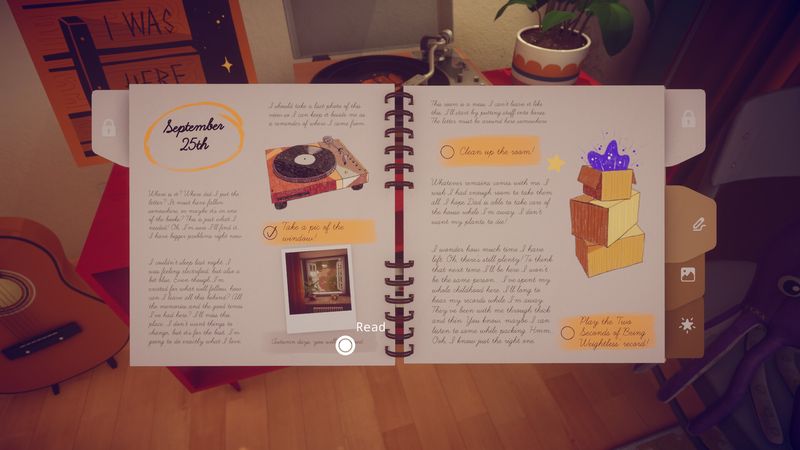 I WAS
HERE
September
25th
Where is it? Where did I put the
letter? It must have fallen
somewhere, or maybe its on one
of the books? This is just what I
needed! Oh, I'm sure I'll find it.
I have bigger problems right now.
I couldn't sleep last night. I
was feeling electrified, but also a
bit blue. Even though I'm
excited for what will follow, how
can I leave all this behind? All
the memories and the good times
I've had here? I'll miss this
place. I don't want things to
change, but it's for the best. I'm
going to do exactly what I love.
I should take a last photo of this
room so I can keep it beside me as
a reminder of where I came from.
Take a pic of the
window!
Read
Autumn days, you will
This room is a mess. I can't leave it like
this. I'll start by putting stuff into boxes.
The letter must be around here somewhere.
Clean up the room!
Whatever remains comes with me. I
wish I had enough room to take them
all. I hope Dad is able to take care of
the house while I'm away. I don't
want my plants to die!
I wonder how much time I have
left. Oh, there's still plenty! To think
that next time I'll be here I won't
be the same person. I've spent my
whole childhood here. I'll long to
hear my records while I'm away.
They've been with me through thick
and thin. You know, maybe I can
listen to some while packing. Hmm.
Ooh, I know just the right one.
Play the Two
Seconds of Being
Weightless record!